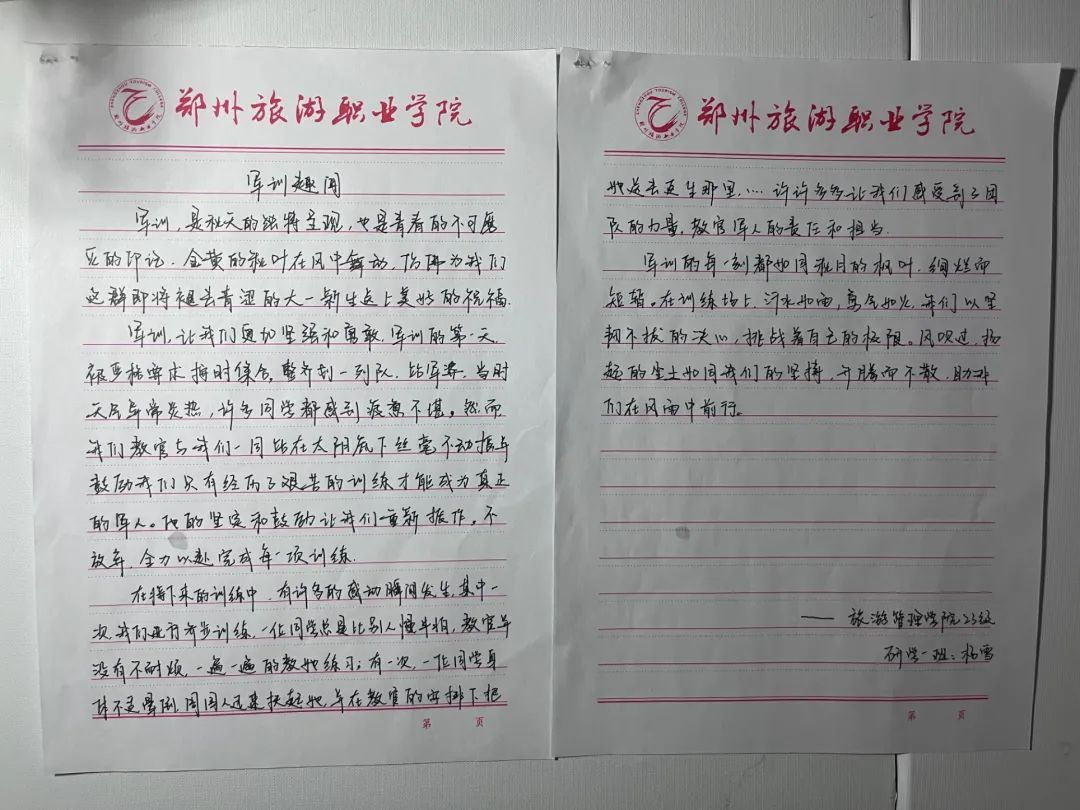 郑州旅游职业学院
军训趣闻
军训,是秋天的独特呈现,也是青春的不可磨
灭的印记。金黄的秋叶在风中舞动,仿佛为我们
这群即将褪去青涩的大一新生送上美好的祝福.
军训,让我们更加坚强和勇敢.军训的第一天,
被严格要求按时集合,整齐划一列队,站军姿,当时
天气异常炎热,许多同学都感到疲惫不堪。然而
我们教官与我们一同站在太阳底下丝毫不动摇与
鼓励我们只有经历了艰苦的训练才能成为真正
的军人。他的坚定和鼓励让我们重新振作,不
放弃,全力以赴完成每一项训练.
在接下来的训练中,有许多的感动瞬间发生,其中一
次,我们进行齐步训练,一位同学总是比别人慢半拍,教官并
没有不耐烦,一遍一遍的教她练习;有一次,一位同学身
体不适晕倒,周围人迅速扶起她,并在教官的安排下把
第 页
郑州旅游职业学院
她送去医生那里.…许许多多让我们感受到了团
队的力量,教官军人的责任和担当.
军训的每一刻都如同秋日的枫叶,绚烂而
短暂。在训练场上,汗水如雨,勇气如火,我们以坚
韧不拔的决心,挑战着自己的极限。风吹过,扬
起的尘土如同我们的坚持,升腾而不散,助我
们在风雨中前行。
——旅游管理学院23级
研学一班:杨雪
第 页